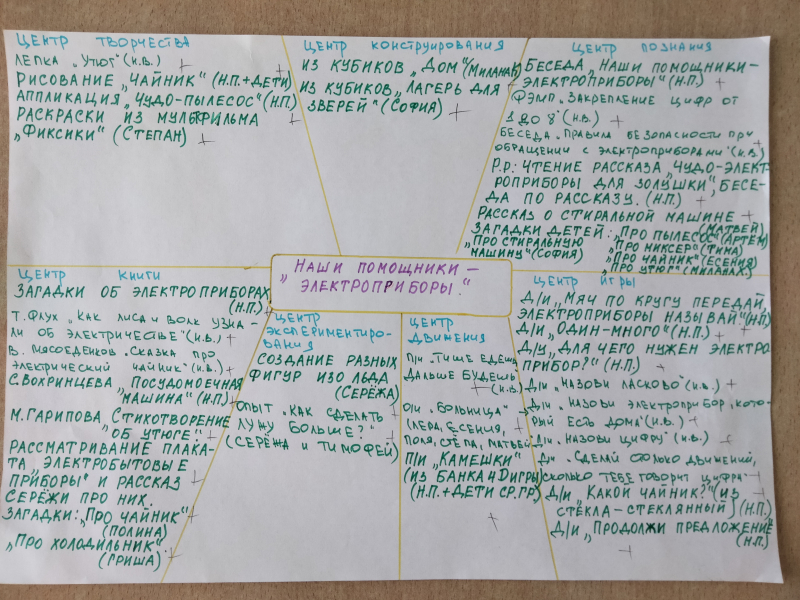 ЦЕНТР ТВОРЧЕСТВА
ЛЕПКА „УТЮГ" (И.В.)
РИСОВАНИЕ „ЧАЙНИК" (Н.П.+ДЕТИ)
АППЛИКАЦИЯ „ЧУДО-ПЫЛЕСОС" (Н.П)
РАСКРАСКИ ИЗ МУЛЬТФИЛЬМА
„ФИКСИКИ" (СТЕПАН)
ЦЕНТР КОНСТРУИРОВАНИЯ
ИЗ КУБИКОВ „ДОМ" (МИЛАНА К)
ИЗ КУБИКОВ „ЛАГЕРЬ ДЛЯ
ЗВЕРЕЙ" (СОФИЯ)
ЦЕНТР ПОЗНАНИЯ
БЕСЕДА „НАШИ ПОМОЩНИКИ –
ЭЛЕКТРОПРИБОРЫ" (Н.П.)
ФЭМП „ЗАКРЕПЛЕНИЕ ЦИФР ОТ
1 ДО 8" (И.В.)
БЕСЕДА „ПРАВИЛА БЕЗОПАСНОСТИ ПРИ
ОБРАЩЕНИИ С ЭЛЕКТРОПРИБОРАМИ" (И.В.)
Р.Р: ЧТЕНИЕ РАССКАЗА „ЧУДО-ЭЛЕКТ-
РОПРИБОРЫ ДЛЯ ЗОЛУШКИ", БЕСЕ-
ДА ПО РАССКАЗУ. (Н.П.)
РАССКАЗ О СТИРАЛЬНОЙ МАШИНЕ
(МАТВЕЙ)
ЗАГАДКИ ДЕТЕЙ: „ПРО ПЫЛЕСОС" (АРТЁМ)
„ПРО СТИРАЛЬНУЮ
МАШИНУ" (СОФИЯ)
„ПРО МИКСЕР" (ТИМА)
„ПРО ЧАЙНИК" (ЕСЕНИЯ)
„ПРО УТЮГ" (МИЛАНА Х.)
„НАШИ ПОМОЩНИКИ –
ЭЛЕКТРОПРИБОРЫ."
ЦЕНТР КНИГИ
ЗАГАДКИ ОБ ЭЛЕКТРОПРИБОРАХ
(Н.П.)
Т. ФЛУХ „КАК ЛИСА И ВОЛК УЗНА-
ЛИ ОБ ЭЛЕКТРИЧЕСТВЕ" (И.В.)
В. МЯСОЕДЕНКОВ „СКАЗКА ПРО
ЭЛЕКТРИЧЕСКИЙ ЧАЙНИК" (И.В.)
С. ВОХРИНЦЕВА „ПОСУДОМОЕЧНАЯ
МАШИНА" (Н.П)
М. ГАРИПОВА „СТИХОТВОРЕНИЕ
ОБ УТЮГЕ"
РАССМАТРИВАНИЕ ПЛАКА-
ТА „ЭЛЕКТРОБЫТОВЫЕ
ПРИБОРЫ" И РАССКАЗ
СЕРЁЖИ ПРО НИХ.
ЗАГАДКИ: „ПРО ЧАЙНИК"
(ПОЛИНА)
„ПРО ХОЛОДИЛЬНИК"
(ГРИША)
ЦЕНТР
ЭКСПЕРИМЕНТИРО-
ВАНИЯ
СОЗДАНИЕ РАЗНЫХ
ФИГУР ИЗО ЛЬДА
(СЕРЁЖА)
ОПЫТ „КАК СДЕЛАТЬ
ЛУЖУ БОЛЬШЕ?"
(СЕРЁЖА И ТИМОФЕЙ)
ЦЕНТР
ДВИЖЕНИЯ
П/И „ТИШЕ ЕДЕШЬ,
ДАЛЬШЕ БУДЕШЬ"
(И.В.)
С/И „БОЛЬНИЦА"
(ЛЕРА, ЕСЕНИЯ,
ПОЛЯ, СТЁПА, МАТВЕЙ)
П/И „КАМЕШКИ"
(ИЗ БАНКА ИДИГРЫ)
(Н.П.+ДЕТИ СР.ГР)
ЦЕНТР ИГРЫ
Д/И „МЯЧ ПО КРУГУ ПЕРЕДАЙ,
ЭЛЕКТРОПРИБОРЫ НАЗЫВАЙ" (Н.П)
Д/И „ОДИН-МНОГО" (Н.П.)
Д/У „ДЛЯ ЧЕГО НУЖЕН ЭЛЕКТРО
ПРИБОР?" (Н.П.)
Д/И „НАЗОВИ ЛАСКОВО" (И.В.)
Д/И „НАЗОВИ ЭЛЕКТРОПРИБОР, КОТО-
РЫЙ ЕСТЬ ДОМА" (И.В.)
Д/И „НАЗОВИ ЦИФРУ" (И.В.)
Д/И „СДЕЛАЙ СТОЛЬКО ДВИЖЕНИЙ,
СКОЛЬКО ТЕБЕ ГОВОРИТ ЦИФРА"
Д/И „КАКОЙ ЧАЙНИК?" (ИЗ
СТЕКЛА-СТЕКЛЯННЫЙ) (Н.П.)
Д/И „ПРОДОЛЖИ ПРЕДЛОЖЕНИЕ"
(Н.П.)